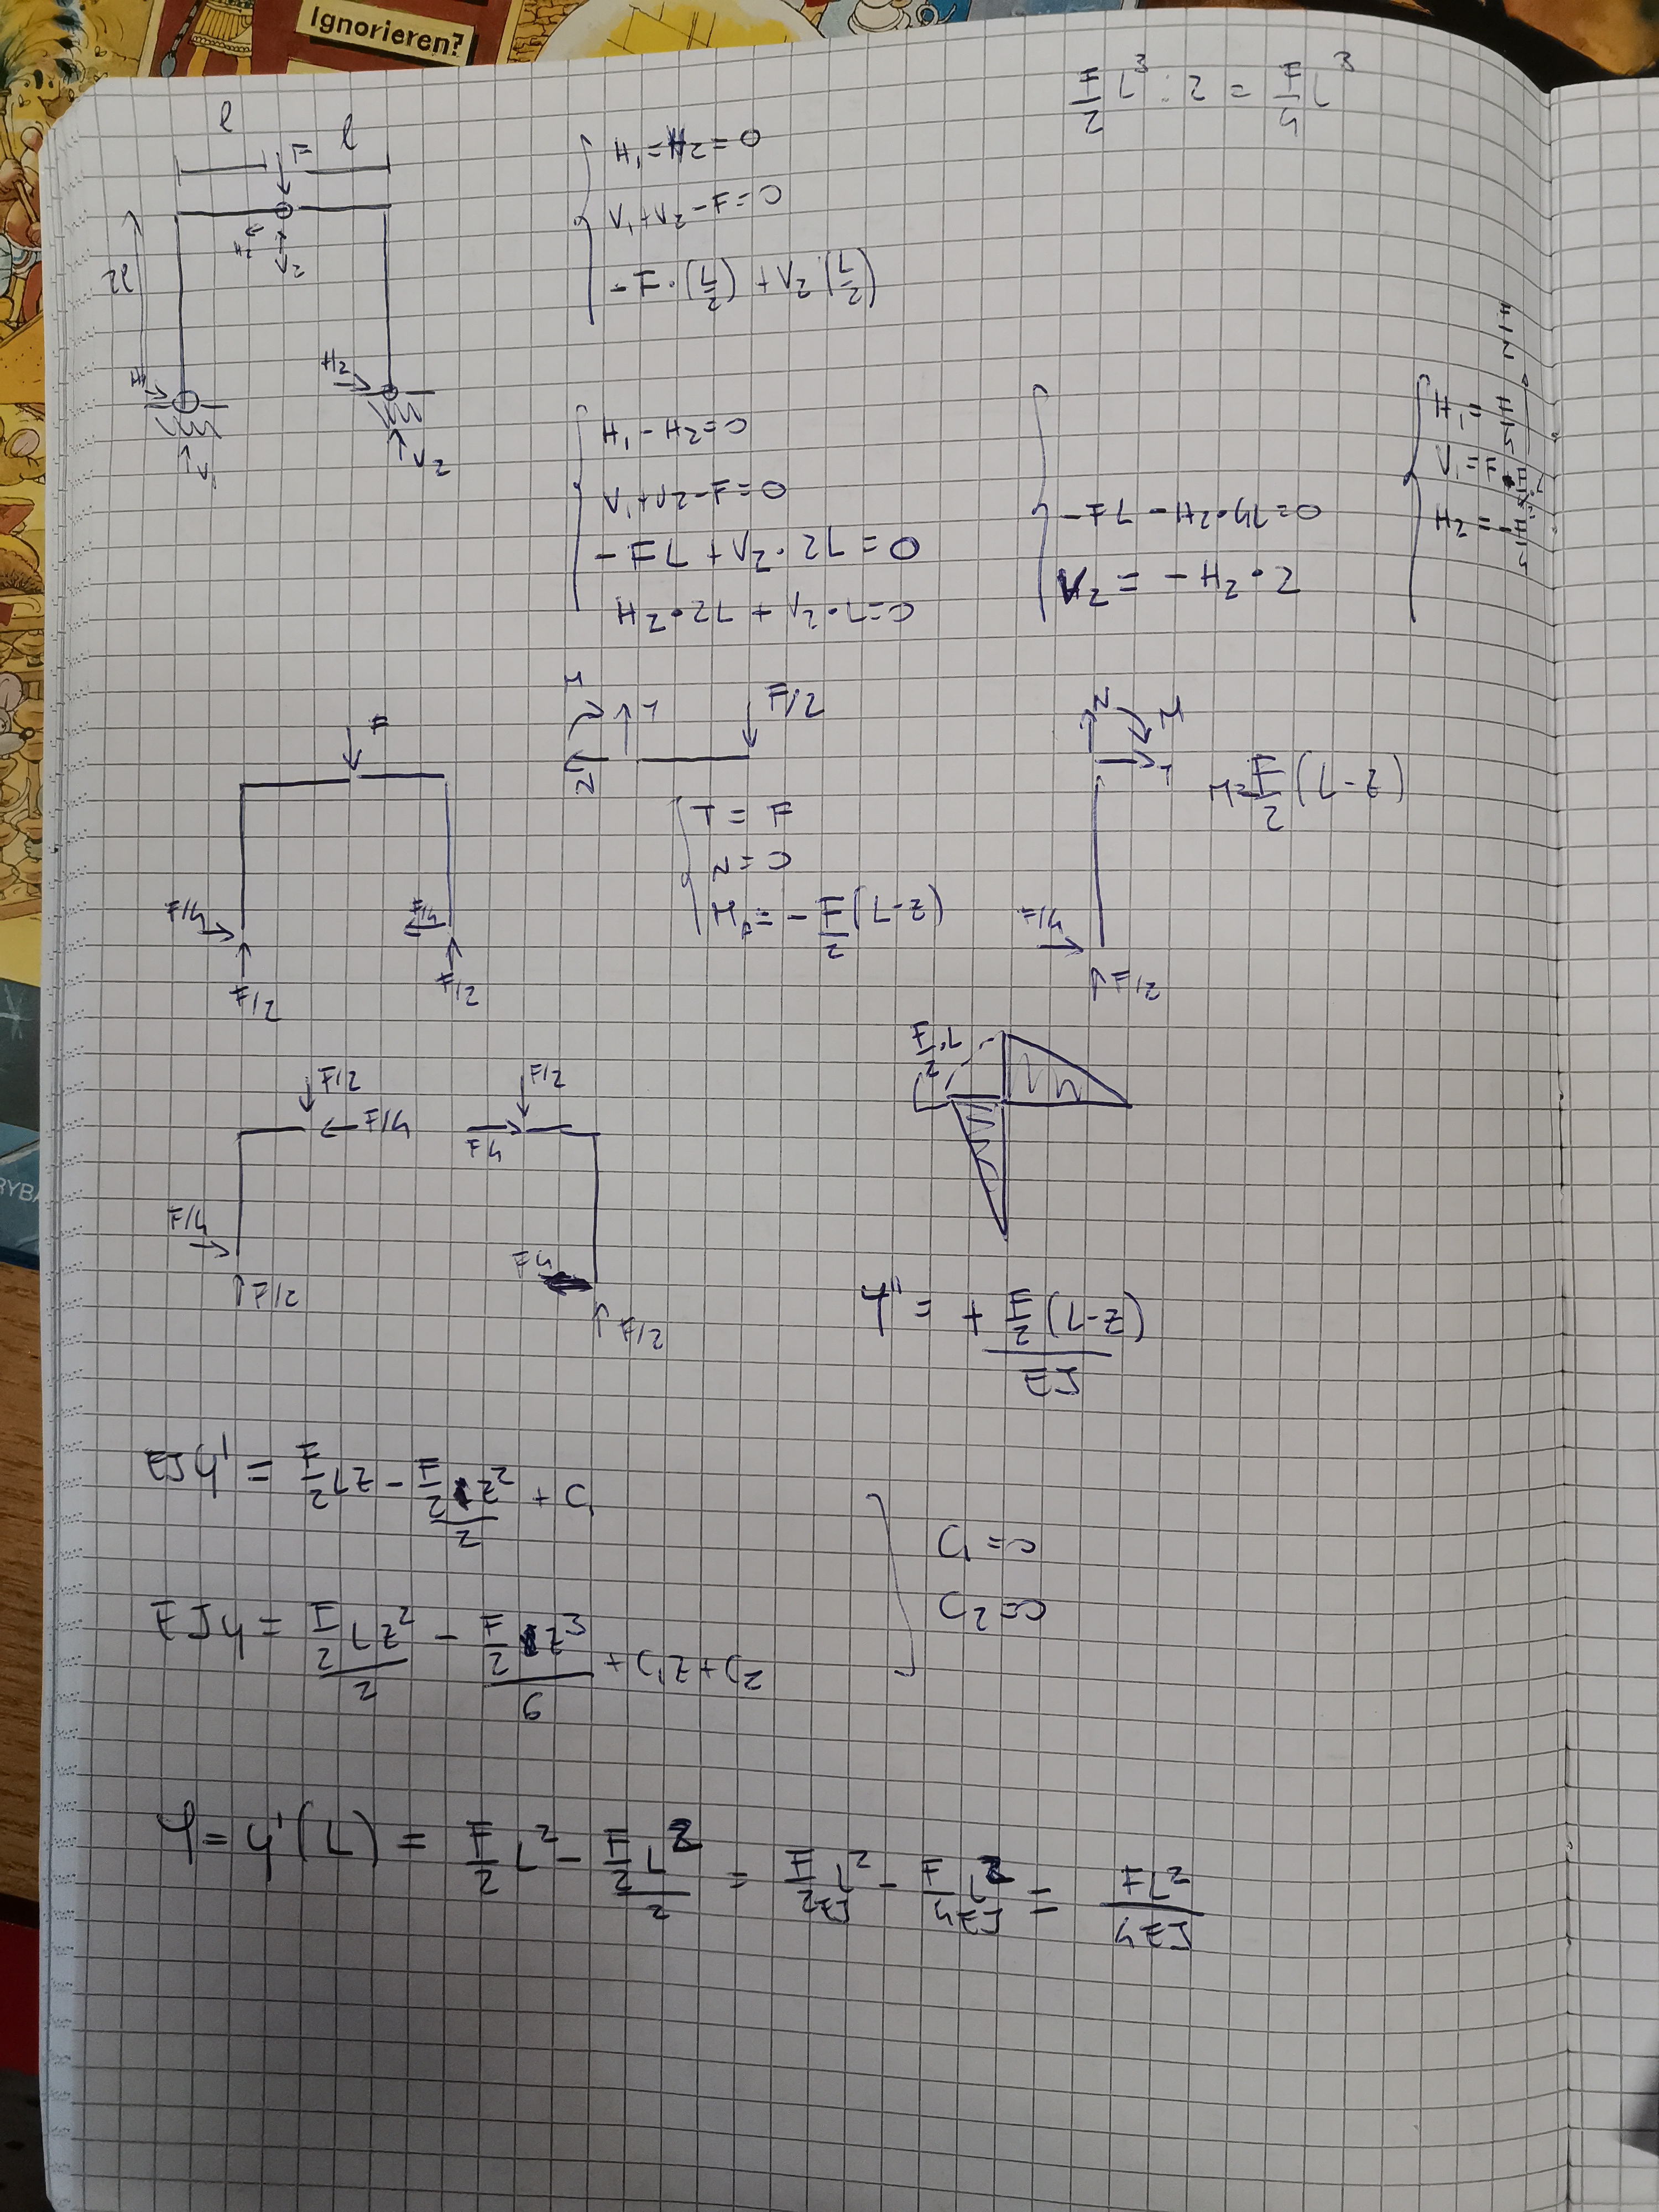 Ignorieren?
F/2 L³ : 2 = F/4 L³
l l
F
H₂
V₂
2l
H₁
V₁
H₂
V₂
H₁ = H₂ = 0
V₁ + V₂ - F = 0
-F · (L/2) + V₂ (L/2)
H₁ - H₂ = 0
V₁ + V₂ - F = 0
-FL + V₂ · 2L = 0
H₂ · 2L + V₂ · L = 0
-FL - H₂ · 4L = 0
V₂ = -H₂ · 2
H₁ = F/4
V₁ = F
H₂ = -F/4
F
F/4
F/4
F/2
F/2
M
T
N
F/2
T = F
N = 0
M = -F/2 (L-z)
N
M
T
M = F/2 (L-z)
F/4
F/2
F/2
F/4
F/4
F/2
F/2
F4
F4
F/2
F/2 · L
y'' = + F/2 (L-z) / EJ
EJy' = F/2 Lz - F/2 z²/2 + C₁
C₁ = 0
EJy = F/2 Lz²/2 - F/2 z³/6 + C₁z + C₂
C₂ = 0
φ = y'(L) = F/2 L² - F/2 L²/2 = F/2EJ L² - F/4EJ L² = FL²/4EJ